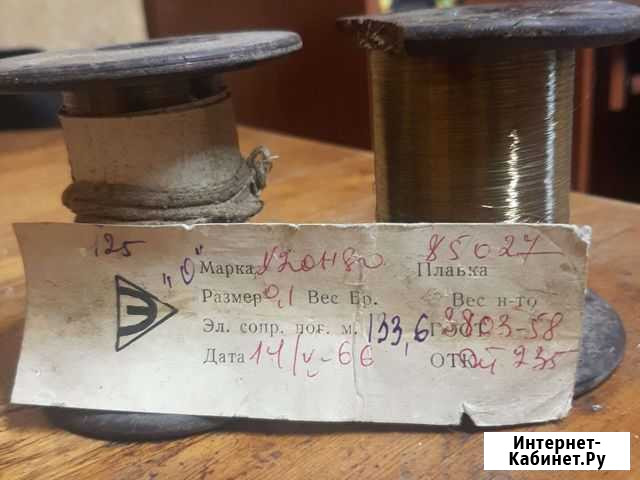 125
"О" Марка Х20Н80 Плавка 85027
Размер 0,1 Вес Бр. Вес н-то
Эл. сопр. пог. м. 133,6 ГОСТ 8803-58
Дата 14/V-66 ОТК 235
Э
Интернет-
Кабинет.Ру